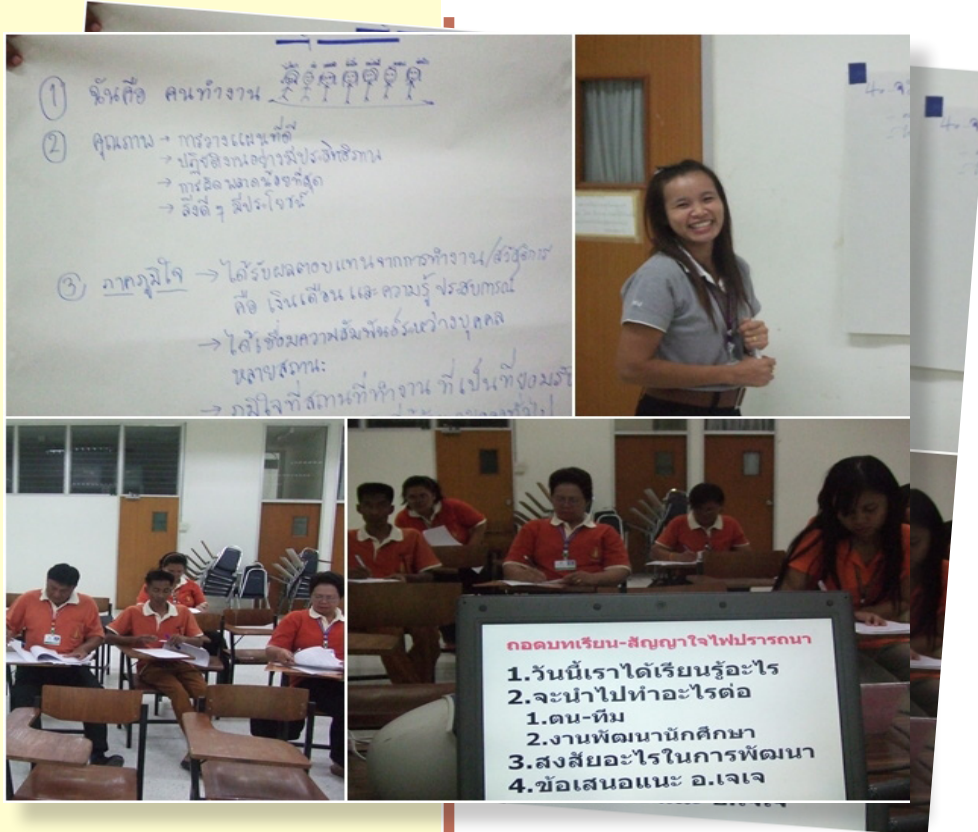 ① ฉันคือ คนทำงาน
② คุณภาพ → การวางแผนที่ดี
→ ปฏิบัติงานอย่างมีประสิทธิภาพ
→ การผิดพลาดน้อยที่สุด
→ สิ่งดี ๆ มีประโยชน์
③ ภาคภูมิใจ → ได้รับผลตอบแทนจากการทำงาน/สวัสดิการ
คือ เงินเดือน และ ความรู้ ประสบการณ์
→ ได้เชื่อมความสัมพันธ์ระหว่างบุคคล
หลายสถานะ
→ ภูมิใจที่สถานที่ทำงาน ที่เป็นที่ยอมรับ
ถอดบทเรียน-สัญญาใจไฟปรารถนา
1.วันนี้เราได้เรียนรู้อะไร
2.จะนำไปทำอะไรต่อ
1.ตน-ทีม
2.งานพัฒนานักศึกษา
3.สงสัยอะไรในการพัฒนา
4.ข้อเสนอแนะ อ.เจเจ